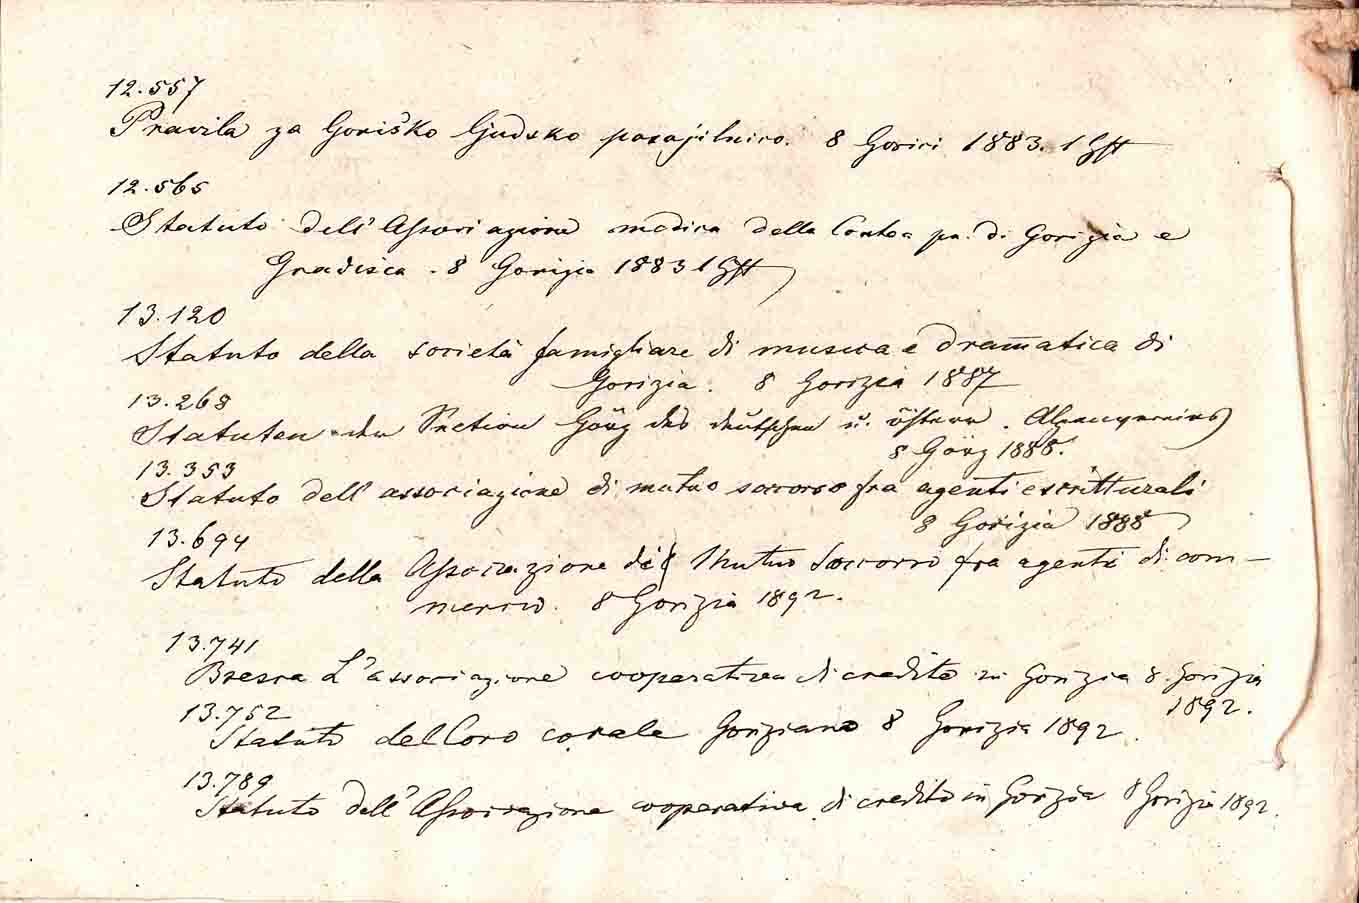 12.557
Pravila za Goriško ljudsko posojilnico. 8 Gorici 1883. 1 Hft
12.565
Statuto dell'Associazione medica della Contea pr. di Gorizia e
Gradisca. 8 Gorizia 1883 1 Hft
13.120
Statuto della società famigliare di musica e dram̅atica di
Gorizia. 8 Gorizia 1887
13.268
Statuten der Section Görz des deutschen u. österr. Alpenvereins
8 Görz 1888.
13.353
Statuto dell'associazione di mutuo soccorso fra agenti scritturali
8 Gorizia 1888
13.694
Statuto della Associazione di Mutuo Soccorso fra agenti di com-
mercio. 8 Gorizia 1892.
13.741
L'associazione cooperativa di credito in Gorizia 8. Gorizia
1892.
13.752
Statuto del Coro corale Goriziano 8 Gorizia 1892.
13.789
Statuto dell'Associazione cooperativa di credito in Gorizia 8 Gorizia 1892.